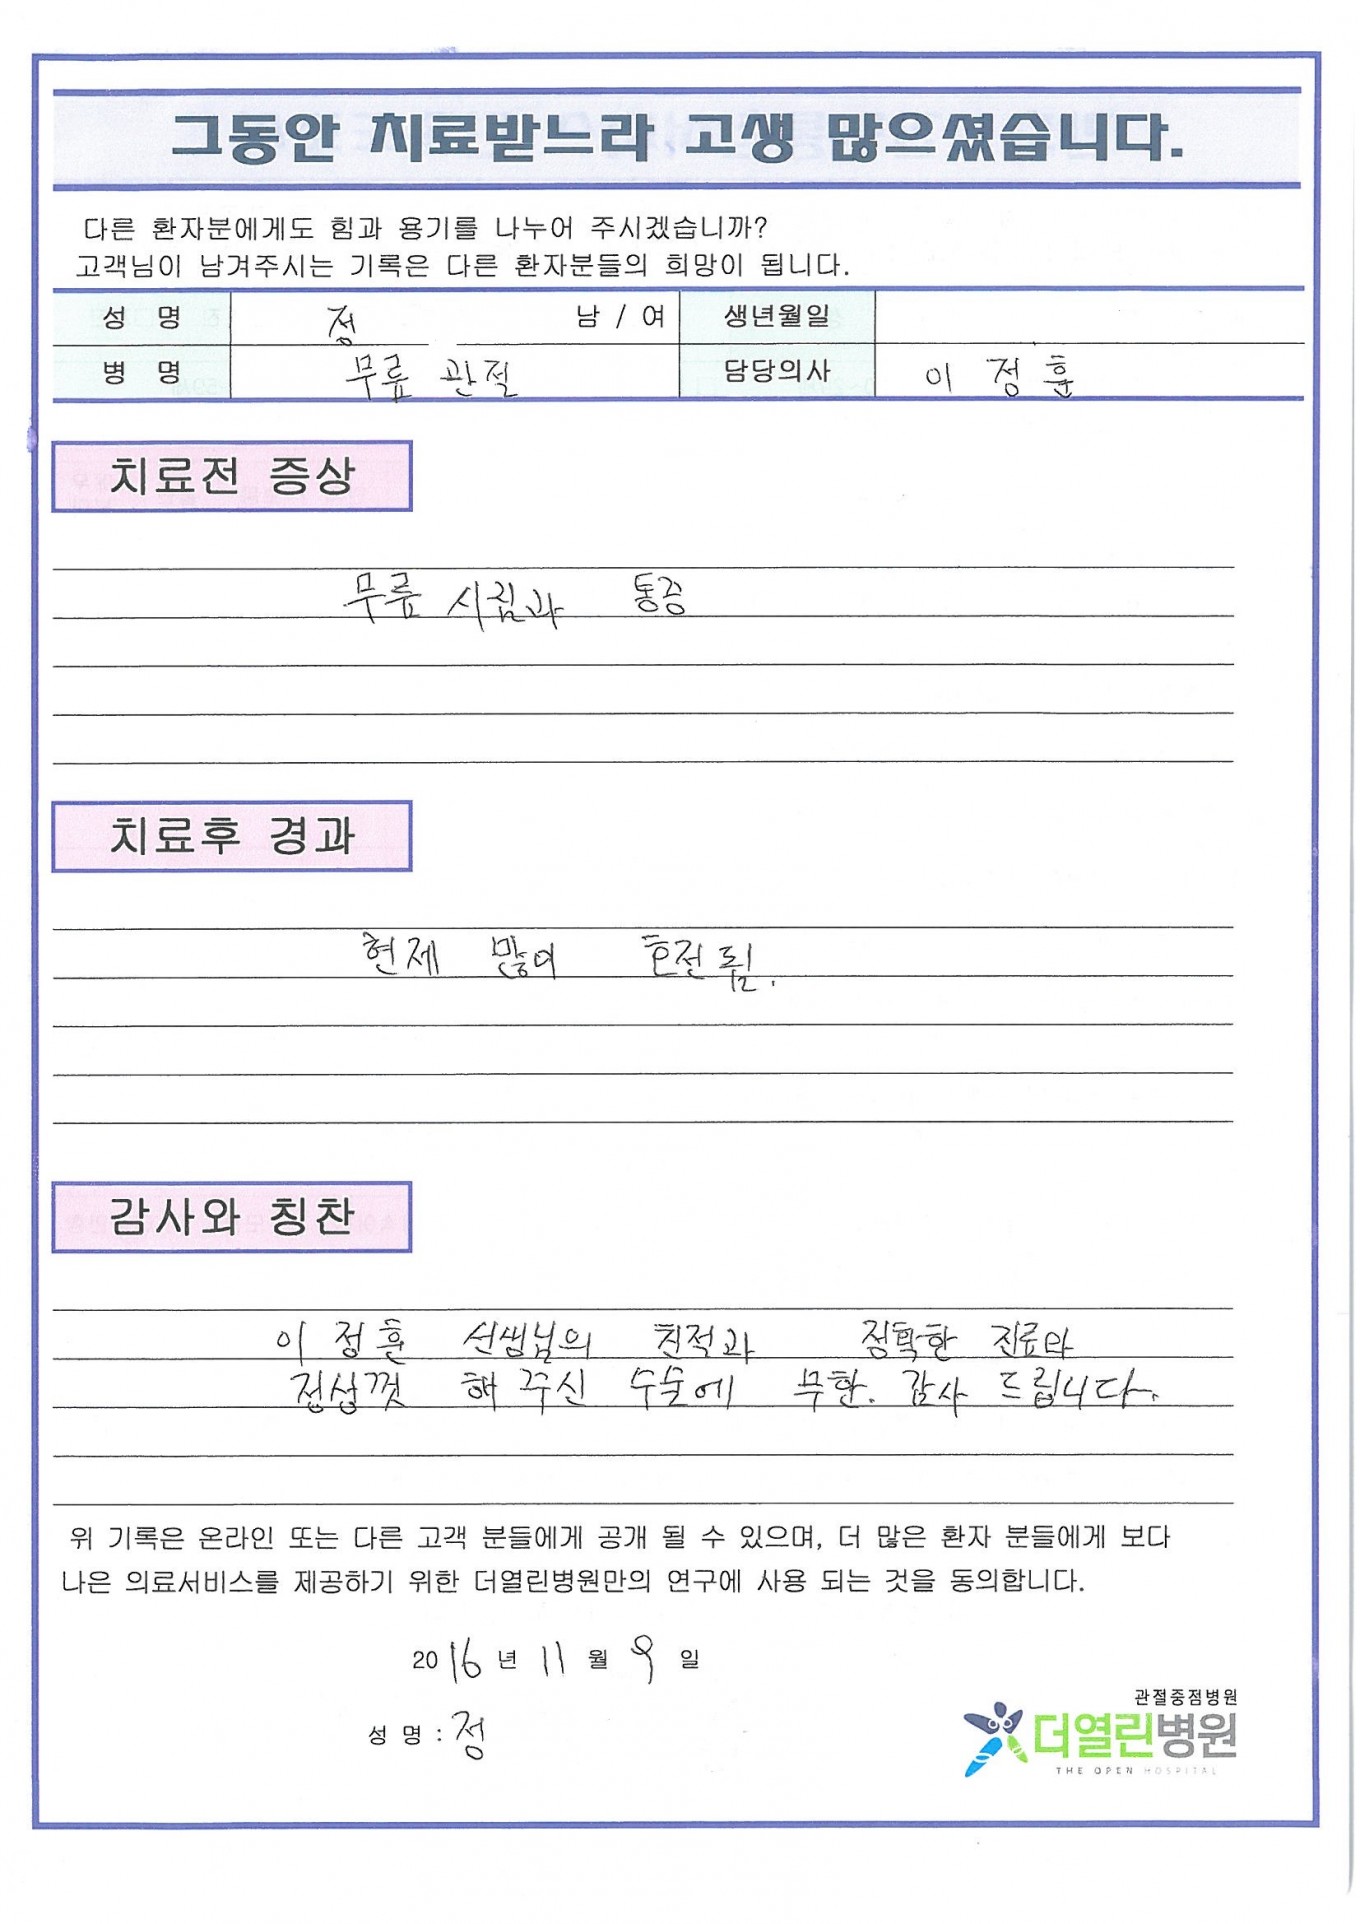 그동안 치료받느라 고생 많으셨습니다.
다른 환자분에게도 힘과 용기를 나누어 주시겠습니까?
고객님이 남겨주시는 기록은 다른 환자분들의 희망이 됩니다.
성 명 정 남 / 여 생년월일
병 명 무릎 관절 담당의사 이 정 훈
치료전 증상
무릎 시림과 통증
치료후 경과
현제 많이 호전됨.
감사와 칭찬
이 정훈 선생님의 친적과 정확한 진료와
정성껏 해 주신 수술에 무한. 감사 드립니다.
위 기록은 온라인 또는 다른 고객 분들에게 공개 될 수 있으며, 더 많은 환자 분들에게 보다
나은 의료서비스를 제공하기 위한 더열린병원만의 연구에 사용 되는 것을 동의합니다.
2016 년 11 월 9 일
성 명 : 정
관절중점병원
더열린병원
THE OPEN HOSPITAL